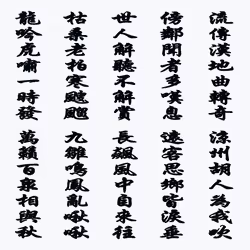 流傳漢地曲轉奇
涼州胡人為我吹
傍鄰聞者多嘆息
遠客思鄉皆淚垂
世人解聽不解賞
長飆風中自來往
枯桑老柏寒颼飀
九雛鳴鳳亂啾啾
龍吟虎嘯一時發
萬籟百泉相與秋